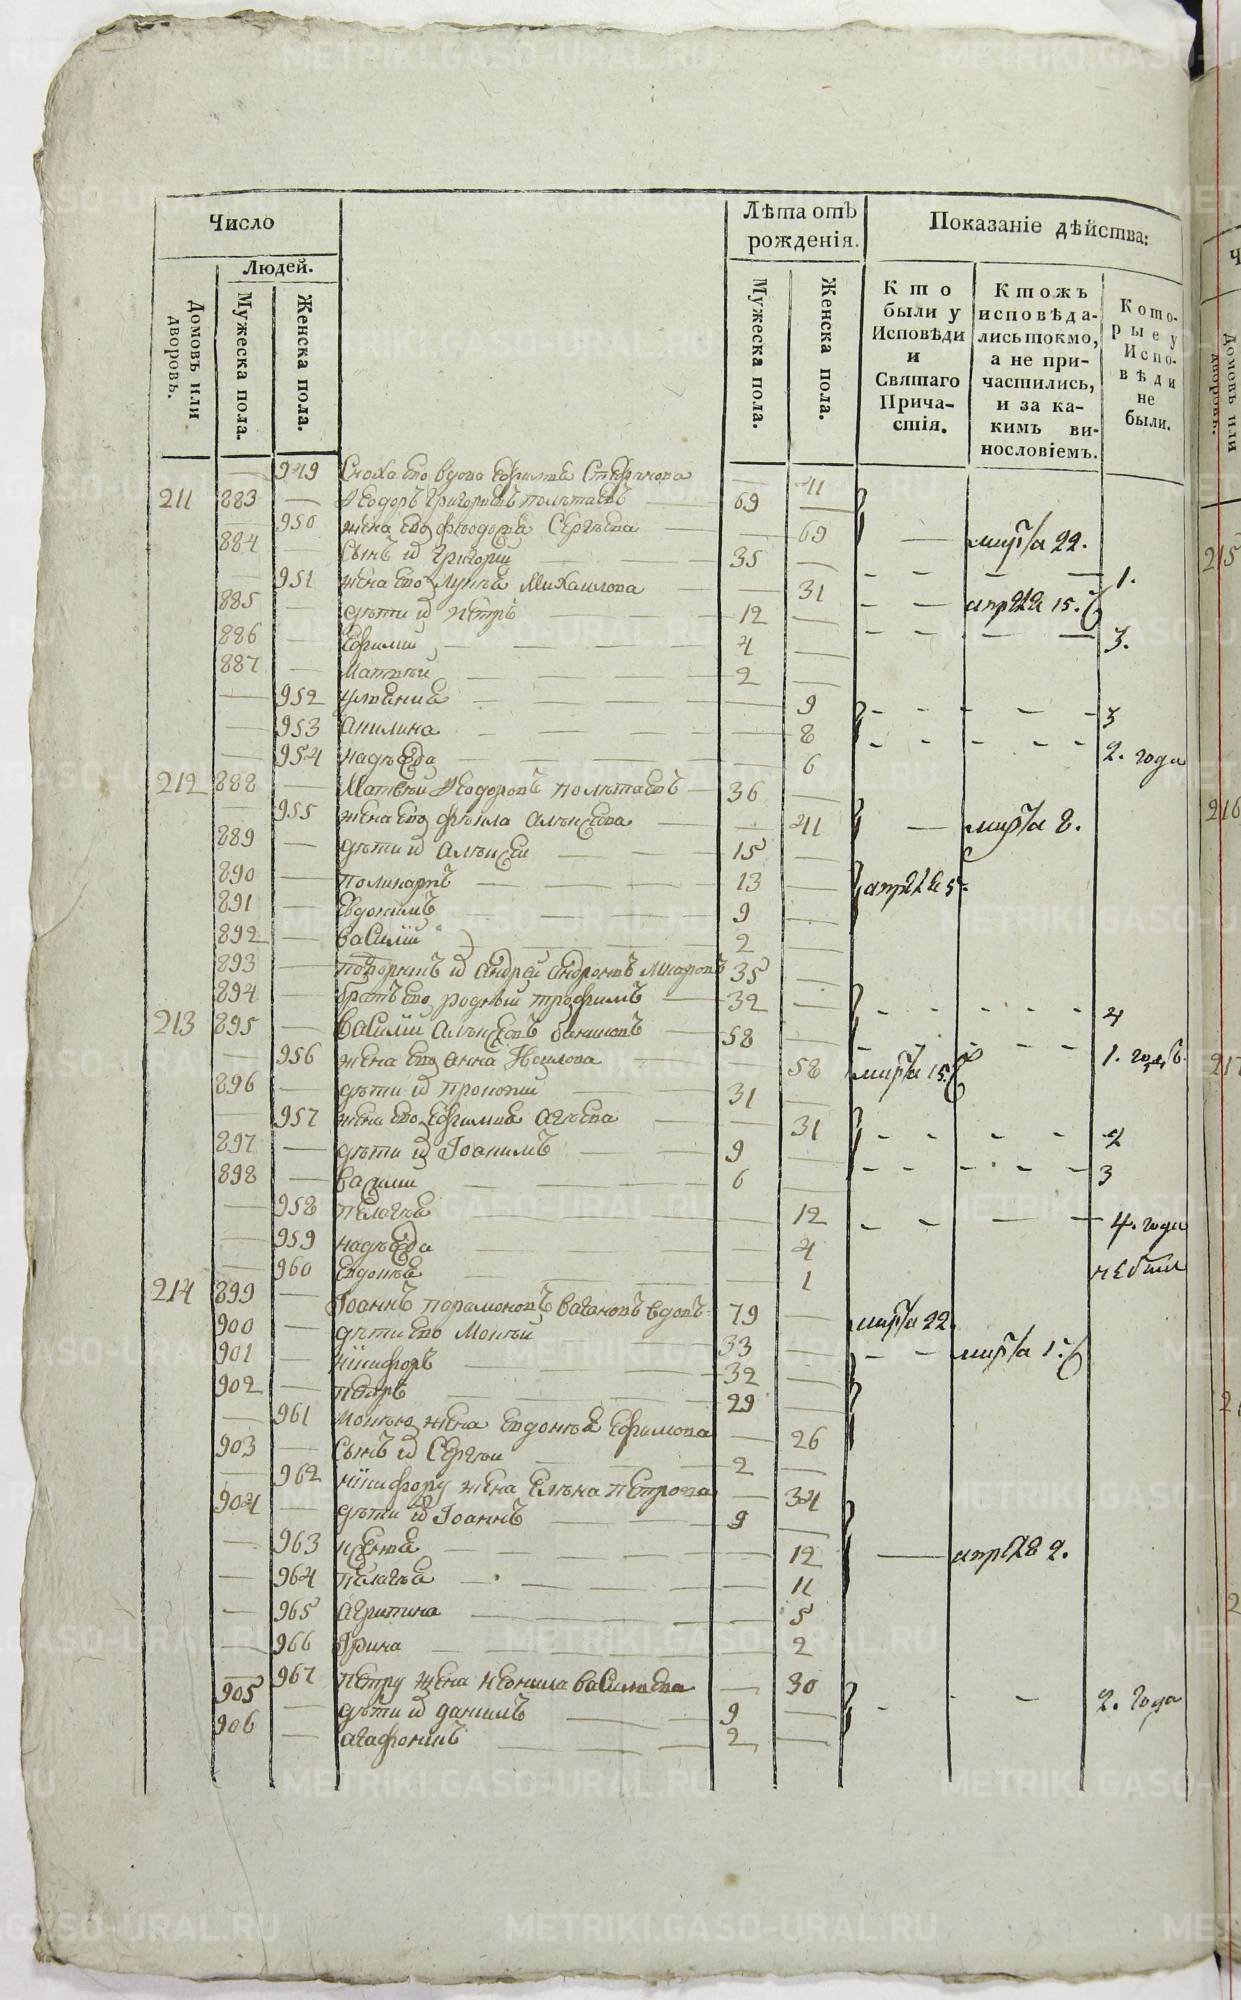 Число
Лѣта отъ рожденія.
Показаніе дѣйства:
Людей.
Домовъ или дворовъ.
Мужеска пола.
Женска пола.
Мужеска пола.
Женска пола.
Кто были у Исповѣди и Святаго Причастія.
Ктожъ исповѣдались токмо, а не причастились, и за какимъ винословіемъ.
Которые у Исповѣди не были.
949 Сноха его вдова Ефимья Стефанова 41
211 883 Ѳеодоръ Григорьевъ 69
950 жена его Ѳеодосья Сергѣева 69 марта 22.
884 сынъ и Григорій 35
951 жена его Лукѣя Михаилова 31 1.
885 дѣти и Петръ 12 апреля 15.
886 Ефимій 4 3.
887 Матвѣй 2
952 Ульянія 9 3
953 Акилина 8
954 надѣжда 6 2. года
212 888 Матвѣй Ѳеодоровъ 36
955 жена его Ѳекла Алексѣева 41 марта 8.
889 дѣти и Алексѣй 15
890 Поликарпъ 13 апреля 5
891 Евдокимъ 9
892 Василій 2
893 и Андрей Андроновъ 35
894 братъ его родный Трофимъ 32 4
213 895 Василій Алексѣевъ 58
956 жена его Анна 58 марта 15. 1. годъ
896 дѣти и Прокопій 31
957 жена его Ефимья 31 2
897 дѣти и Іоакимъ 9
898 Василій 6 3
958 Пелагѣя 12 4. года
959 надѣжда 4
960 Евдокѣя 1 не были
214 899 Іоаннъ Парамоновъ Вагановъ вдовъ 79 марта 22
900 дѣти его Мокѣй 33 марта 15
901 Никифоръ 32
902 Петръ 29
961 Мокѣю жена Евдокѣя Ефимова 26
903 сынъ и Сергѣй 2
962 Никифору жена Елена Петрова 34
904 дѣти и Іоаннъ 9
963 Ксенія 12 апреля 2.
964 Пелагѣя 11
965 Агрипина 5
966 Ирина 2
967 Петру жена Неонила Васильева 30
905 дѣти и Даніилъ 9 2. года
906 Агафоникъ 2
Домовъ или дворовъ.
215
216
217
METRIKI.GASO-URAL.RU